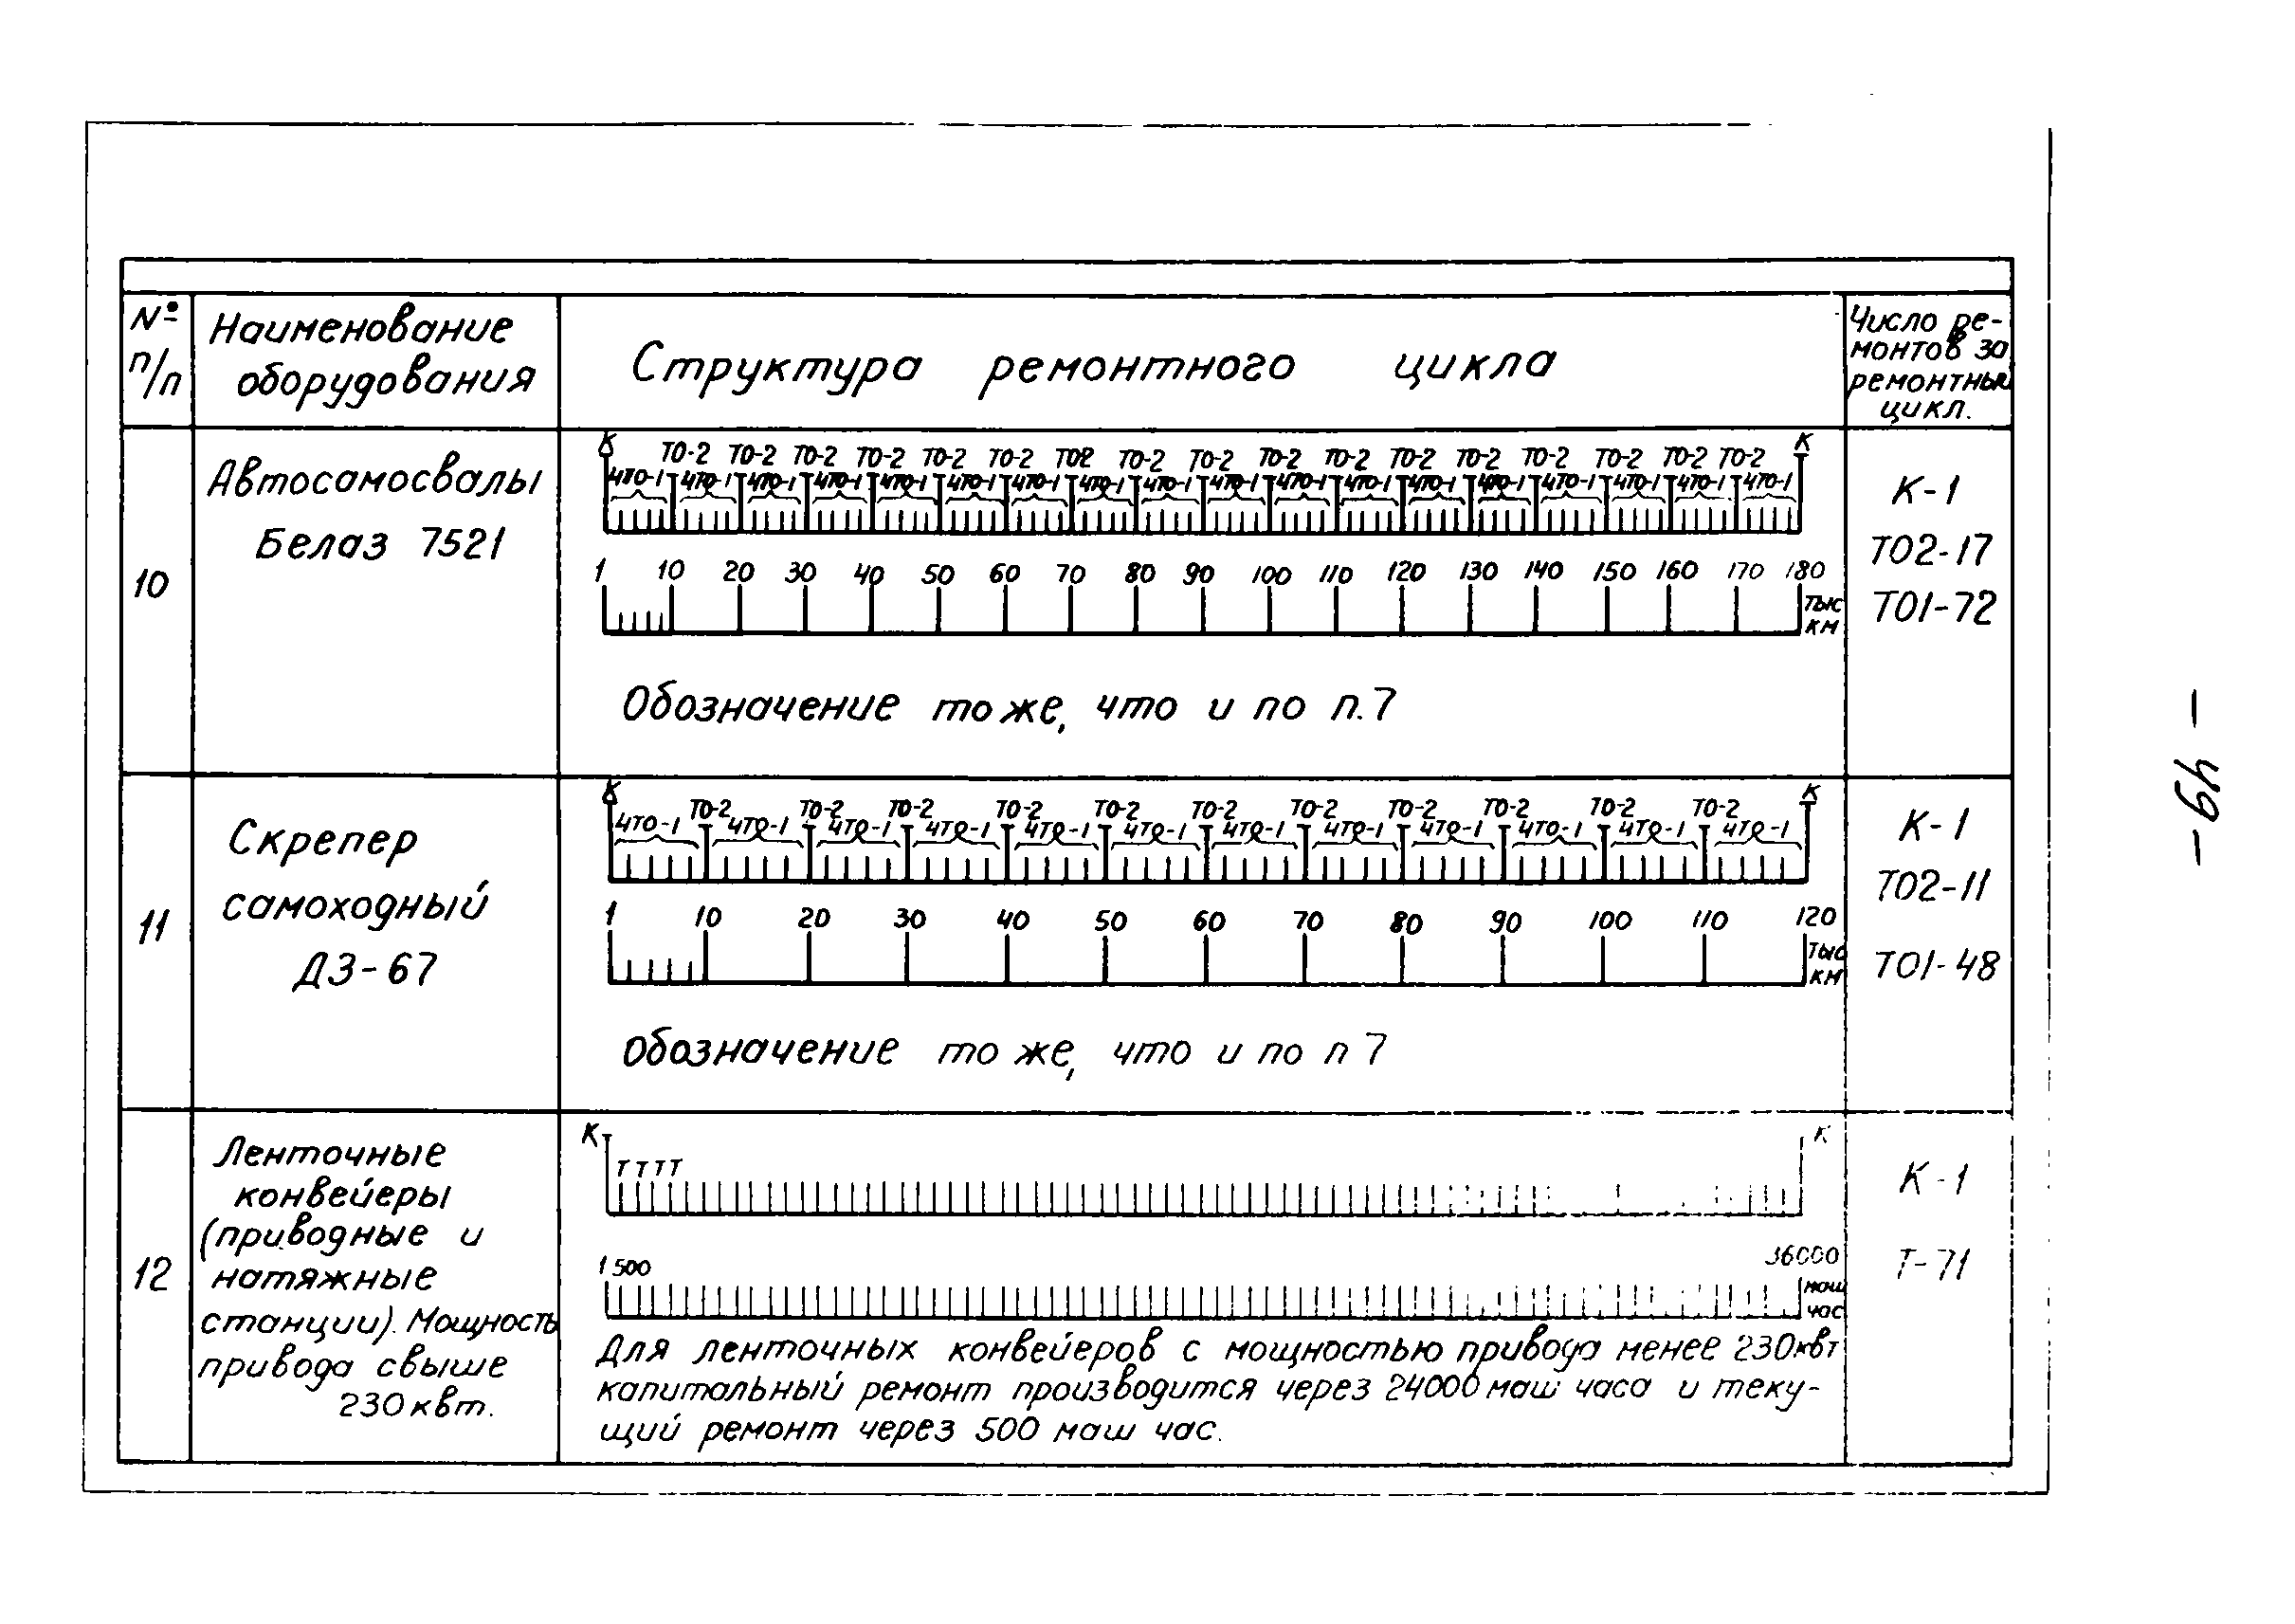 № п/п
Наименование
оборудования
Структура ремонтного цикла
Число ре-
монтов за
ремонтный
цикл.
10
Автосамосвалы
Белаз 7521
К ТО-2 ТО-2 ТО-2 ТО-2 ТО-2 ТО-2 ТО2 ТО-2 ТО-2 ТО-2 ТО-2 ТО-2 ТО-2 ТО-2 ТО-2 ТО-2 ТО-2 К
4ТО-1 4ТО-1 4ТО-1 4ТО-1 4ТО-1 4ТО-1 4ТО-1 4ТО-1 4ТО-1 4ТО-1 4ТО-1 4ТО-1 4ТО-1 4ТО-1 4ТО-1 4ТО-1 4ТО-1 4ТО-1
1 10 20 30 40 50 60 70 80 90 100 110 120 130 140 150 160 170 180
тыс
км
Обозначение то же, что и по п.7
К-1
ТО2-17
ТО1-72
11
Скрепер
самоходный
ДЗ-67
К ТО-2 ТО-2 ТО-2 ТО-2 ТО-2 ТО-2 ТО-2 ТО-2 ТО-2 ТО-2 ТО-2 К
4ТО-1 4ТО-1 4ТО-1 4ТО-1 4ТО-1 4ТО-1 4ТО-1 4ТО-1 4ТО-1 4ТО-1 4ТО-1 4ТО-1
1 10 20 30 40 50 60 70 80 90 100 110 120
тыс
км
Обозначение то же, что и по п 7
К-1
ТО2-11
ТО1-48
12
Ленточные
конвейеры
(приводные и
натяжные
станции). Мощность
привода свыше
230 квт.
К Т Т Т Т К
1 500 36000
маш
час
Для ленточных конвейеров с мощностью привода менее 230квт
капитальный ремонт производится через 24000 маш часа и теку-
щий ремонт через 500 маш час.
К-1
Т-71
-49-